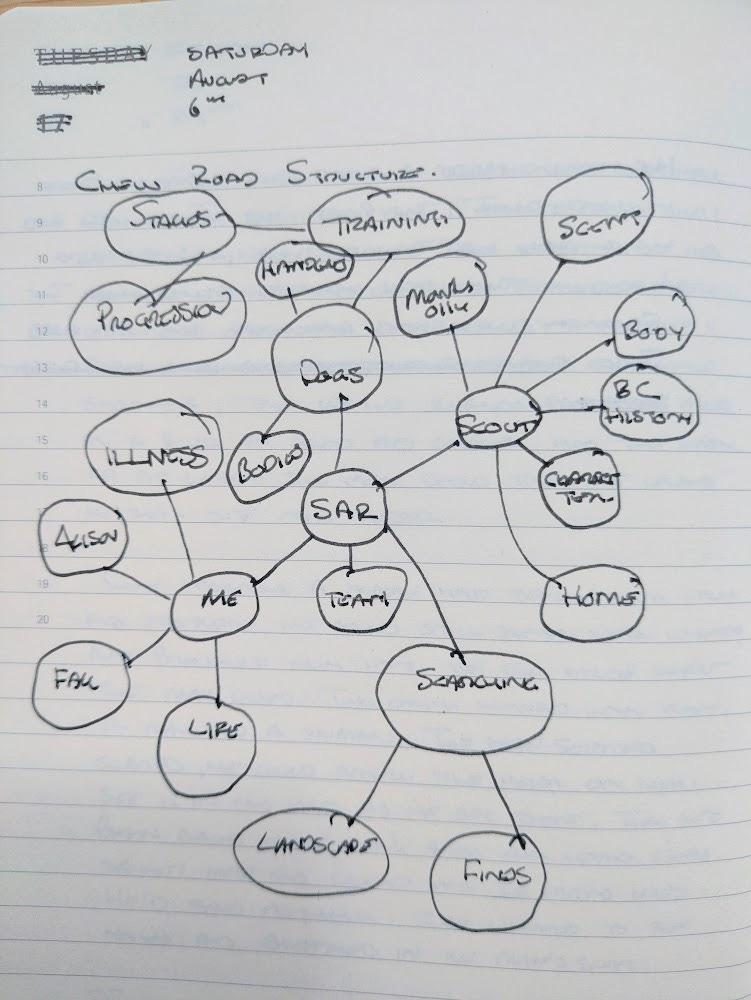 TUESDAY SATURDAY
August AUGUST
17 6TH
8
CHEW ROAD STRUCTURE.
9
STAGES
TRAINING
SCENT
10
HANDLER
11
PROGRESSION
12
BODY
13
DOGS
14
BC
HISTORY
15
SCOUT
ILLNESS
BODIES
16
SAR
ALISON
19
ME
TEAM
HOME
20
SEARCHING
LIFE
LANDSCAPE
FINDS